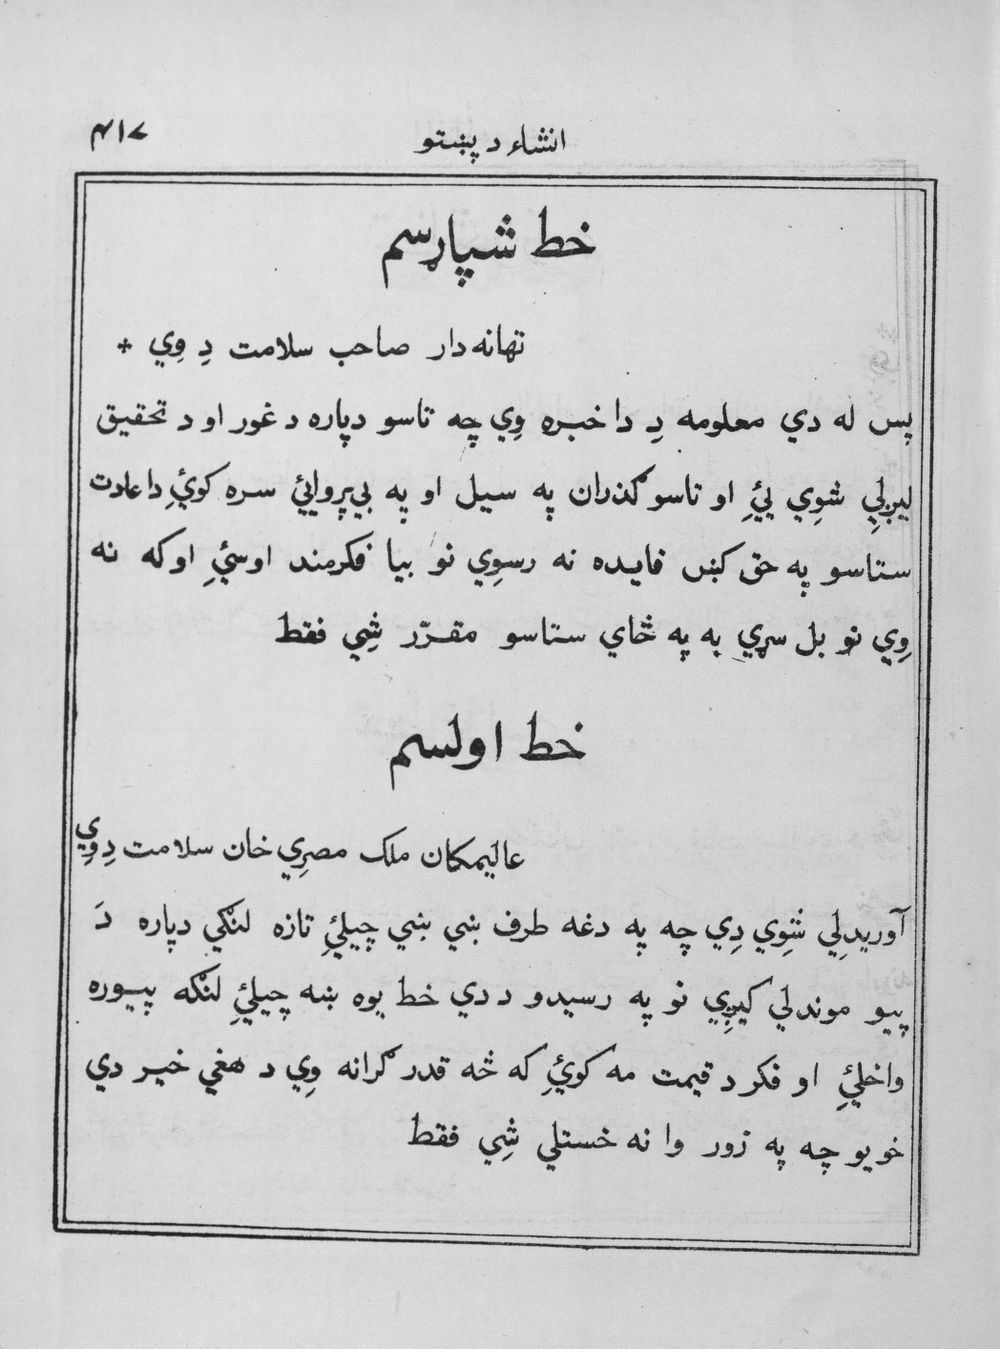 انشاء د پښتو
۴۱۷
خط شپاړسم
تهانه‌دار صاحب سلامت دِ وِي *
پس له دي معلومه دِ دا خبره وِي چه تاسو دپاره د غور او د تحقیق
لیږلِي شوِي یئِ او تاسو گذران په سیل او په بی‌پروایئ سره کوئِ دا عادت
ستاسو په حق کښ فایده نه رسوِي نو بیا فکرمند اوسئِ او که نه
وِي نو بل سړي به په ځاي ستاسو مقرّر شِي فقط
خط اولسم
عالیمکان ملک مصرِي خان سلامت دِ وِي
آوریدلِي شوِي دِي چه په دغه طرف ښي ښي چیلئِ تازه لنګي دپاره دَ
پیو موندلي کیږِي نو په رسیدو د دي خط یوه ښه چیلئِ لنګه پیوره
واخلئِ او فکر د قیمت مه کوئِ که څه قدر گرانه وِي د هغي خیر دي
خو یو چه په زور وا نه خستلي شِي فقط